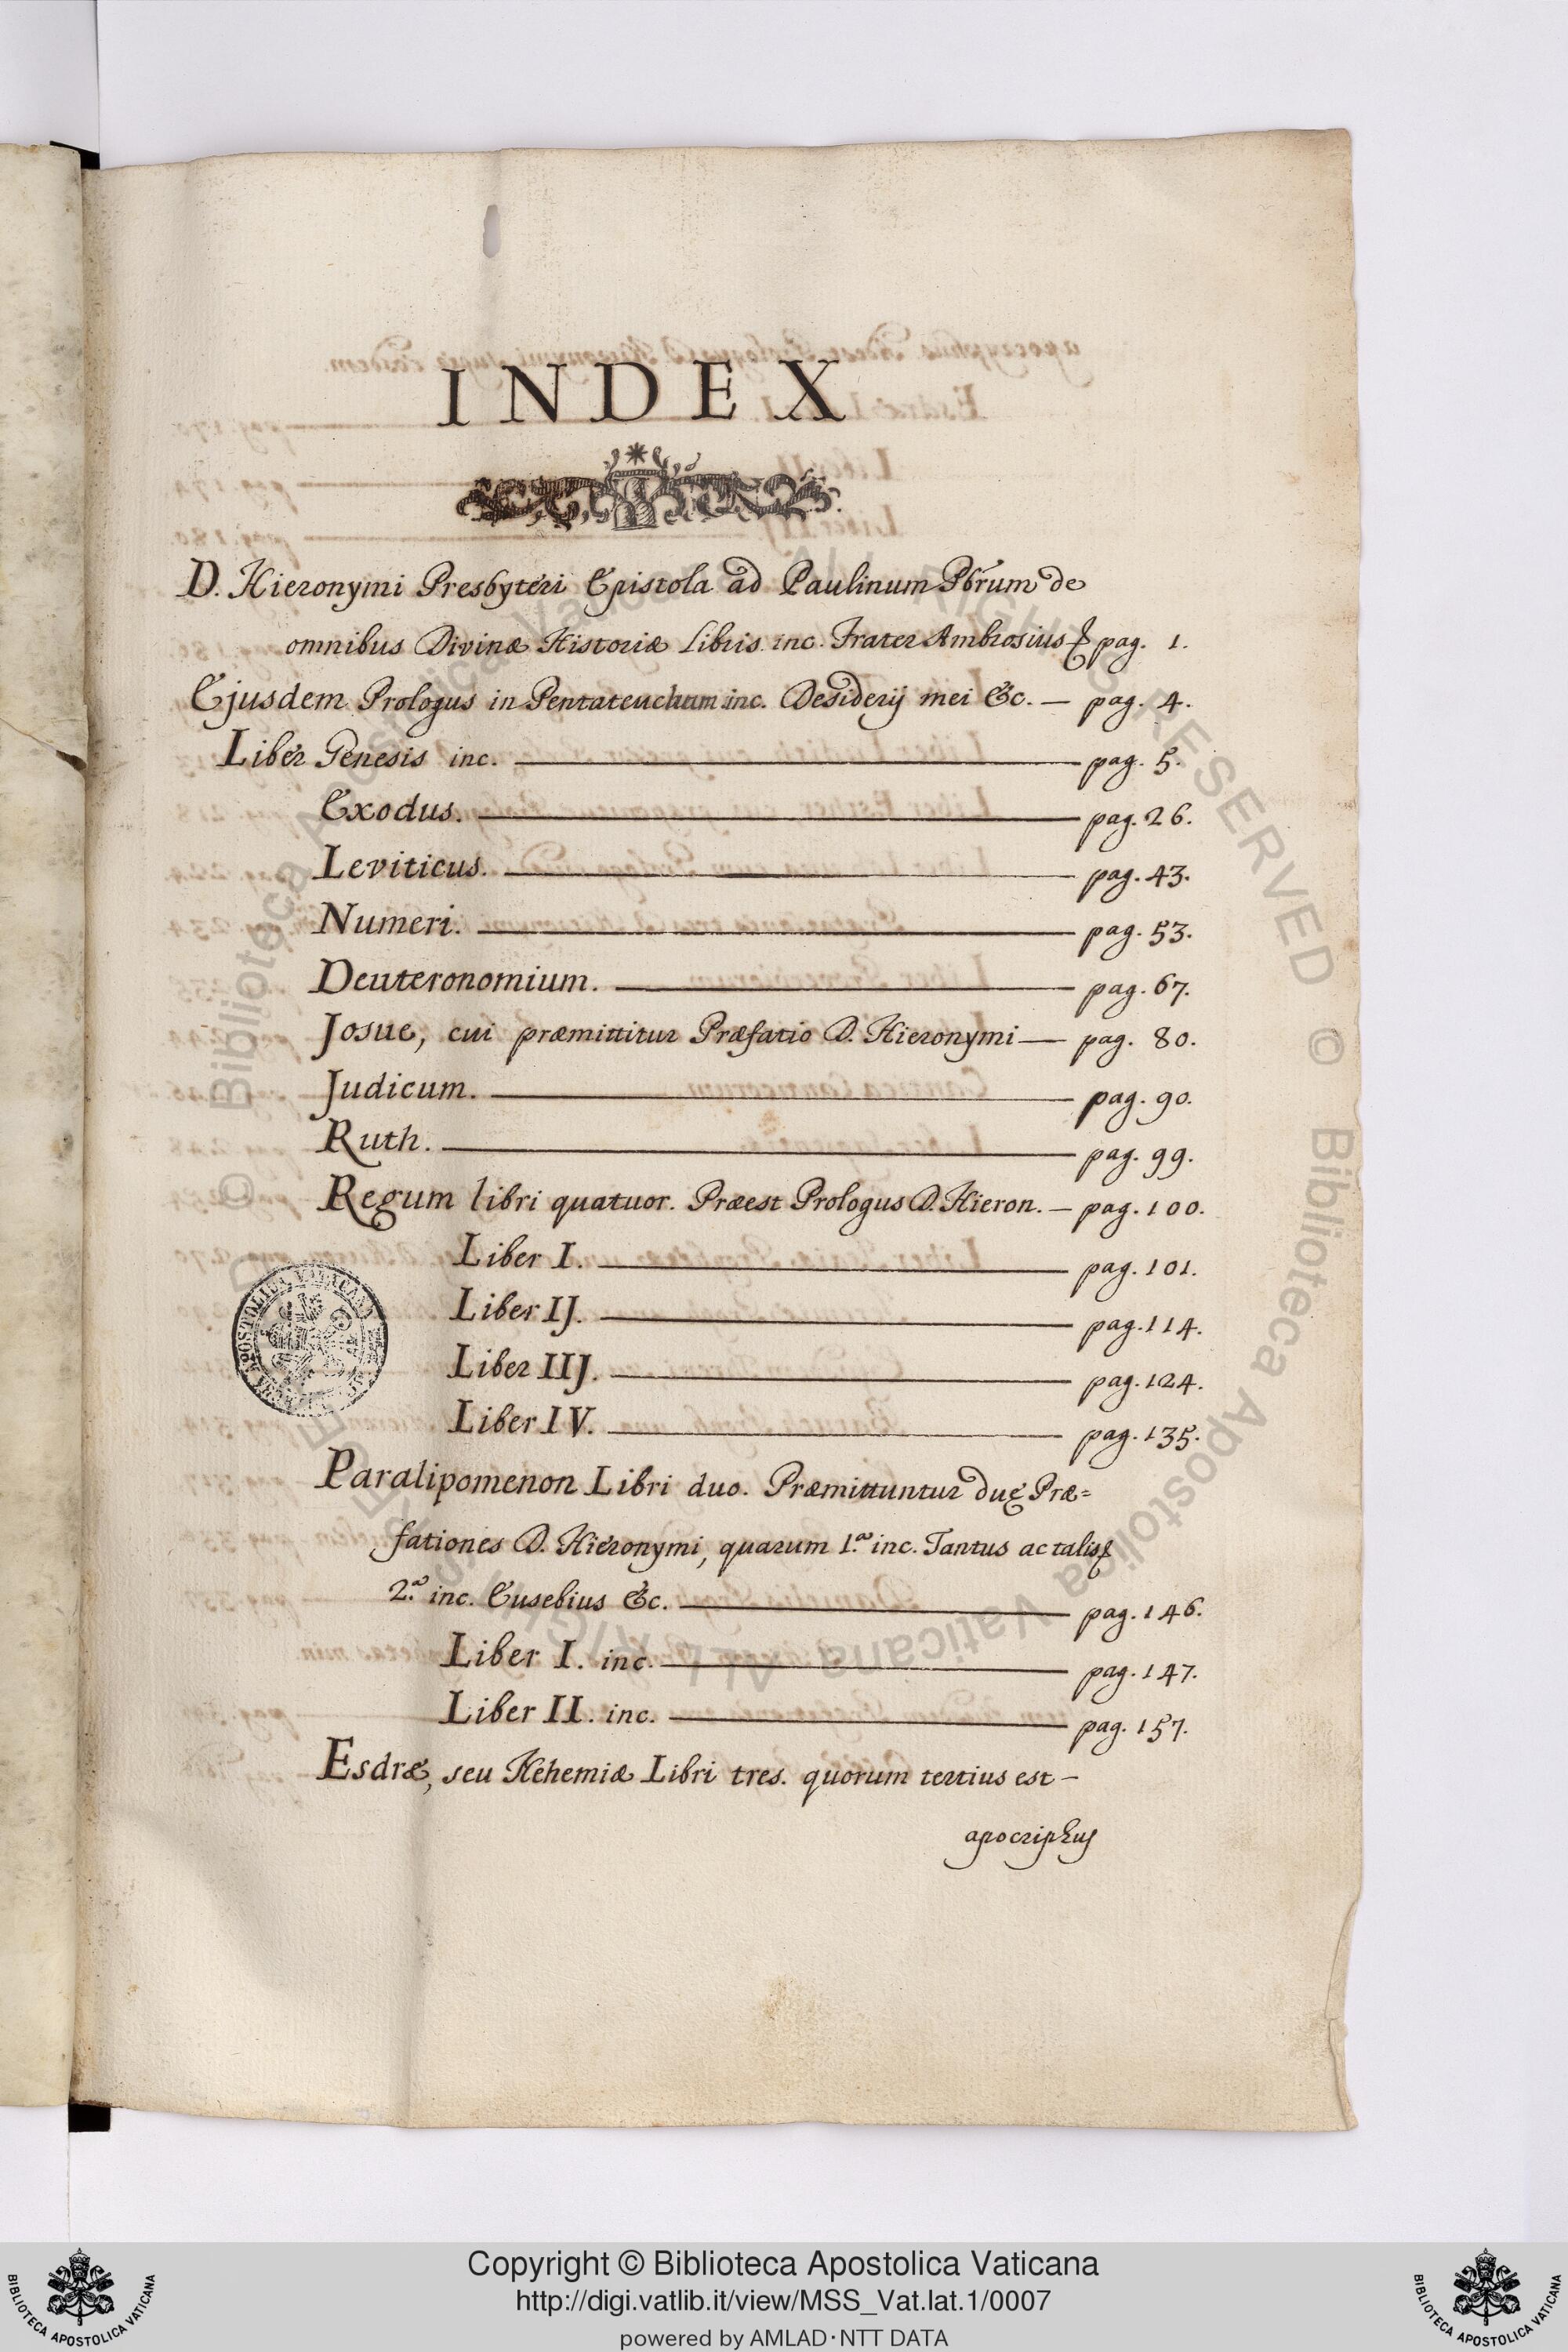 INDEX
D. Hieronymi Presbyteri Epistola ad Paulinum Pbrum de
omnibus Divinæ Historiæ Libris inc. Frater Ambrosius & pag. 1.
Ejusdem Prologus in Pentateuchum inc. Desiderij mei &c. — pag. 4.
Liber Genesis inc. — pag. 5.
Exodus. — pag. 26.
Leviticus. — pag. 43.
Numeri. — pag. 53.
Deuteronomium. — pag. 67.
Josue, cui præmittitur Præfatio D. Hieronymi — pag. 80.
Judicum. — pag. 90.
Ruth. — pag. 99.
Regum libri quatuor. Præest Prologus D. Hieron. — pag. 100.
Liber I. — pag. 101.
Liber IJ. — pag. 114.
Liber IIJ. — pag. 124.
Liber IV. — pag. 135.
Paralipomenon Libri duo. Præmittuntur duę Præ=
fationes D. Hieronymi, quarum 1.ª inc. Tantus ac talis &
2.ª inc. Eusebius &c. — pag. 146.
Liber I. inc. — pag. 147.
Liber II. inc. — pag. 157.
Esdræ, seu Nehemiæ Libri tres. quorum tertius est —
apocriphus
Copyright © Biblioteca Apostolica Vaticana
http://digi.vatlib.it/view/MSS_Vat.lat.1/0007
powered by AMLAD·NTT DATA
BIBLIOTECA APOSTOLICA VATICANA
BIBLIOTECA APOSTOLICA VATICANA